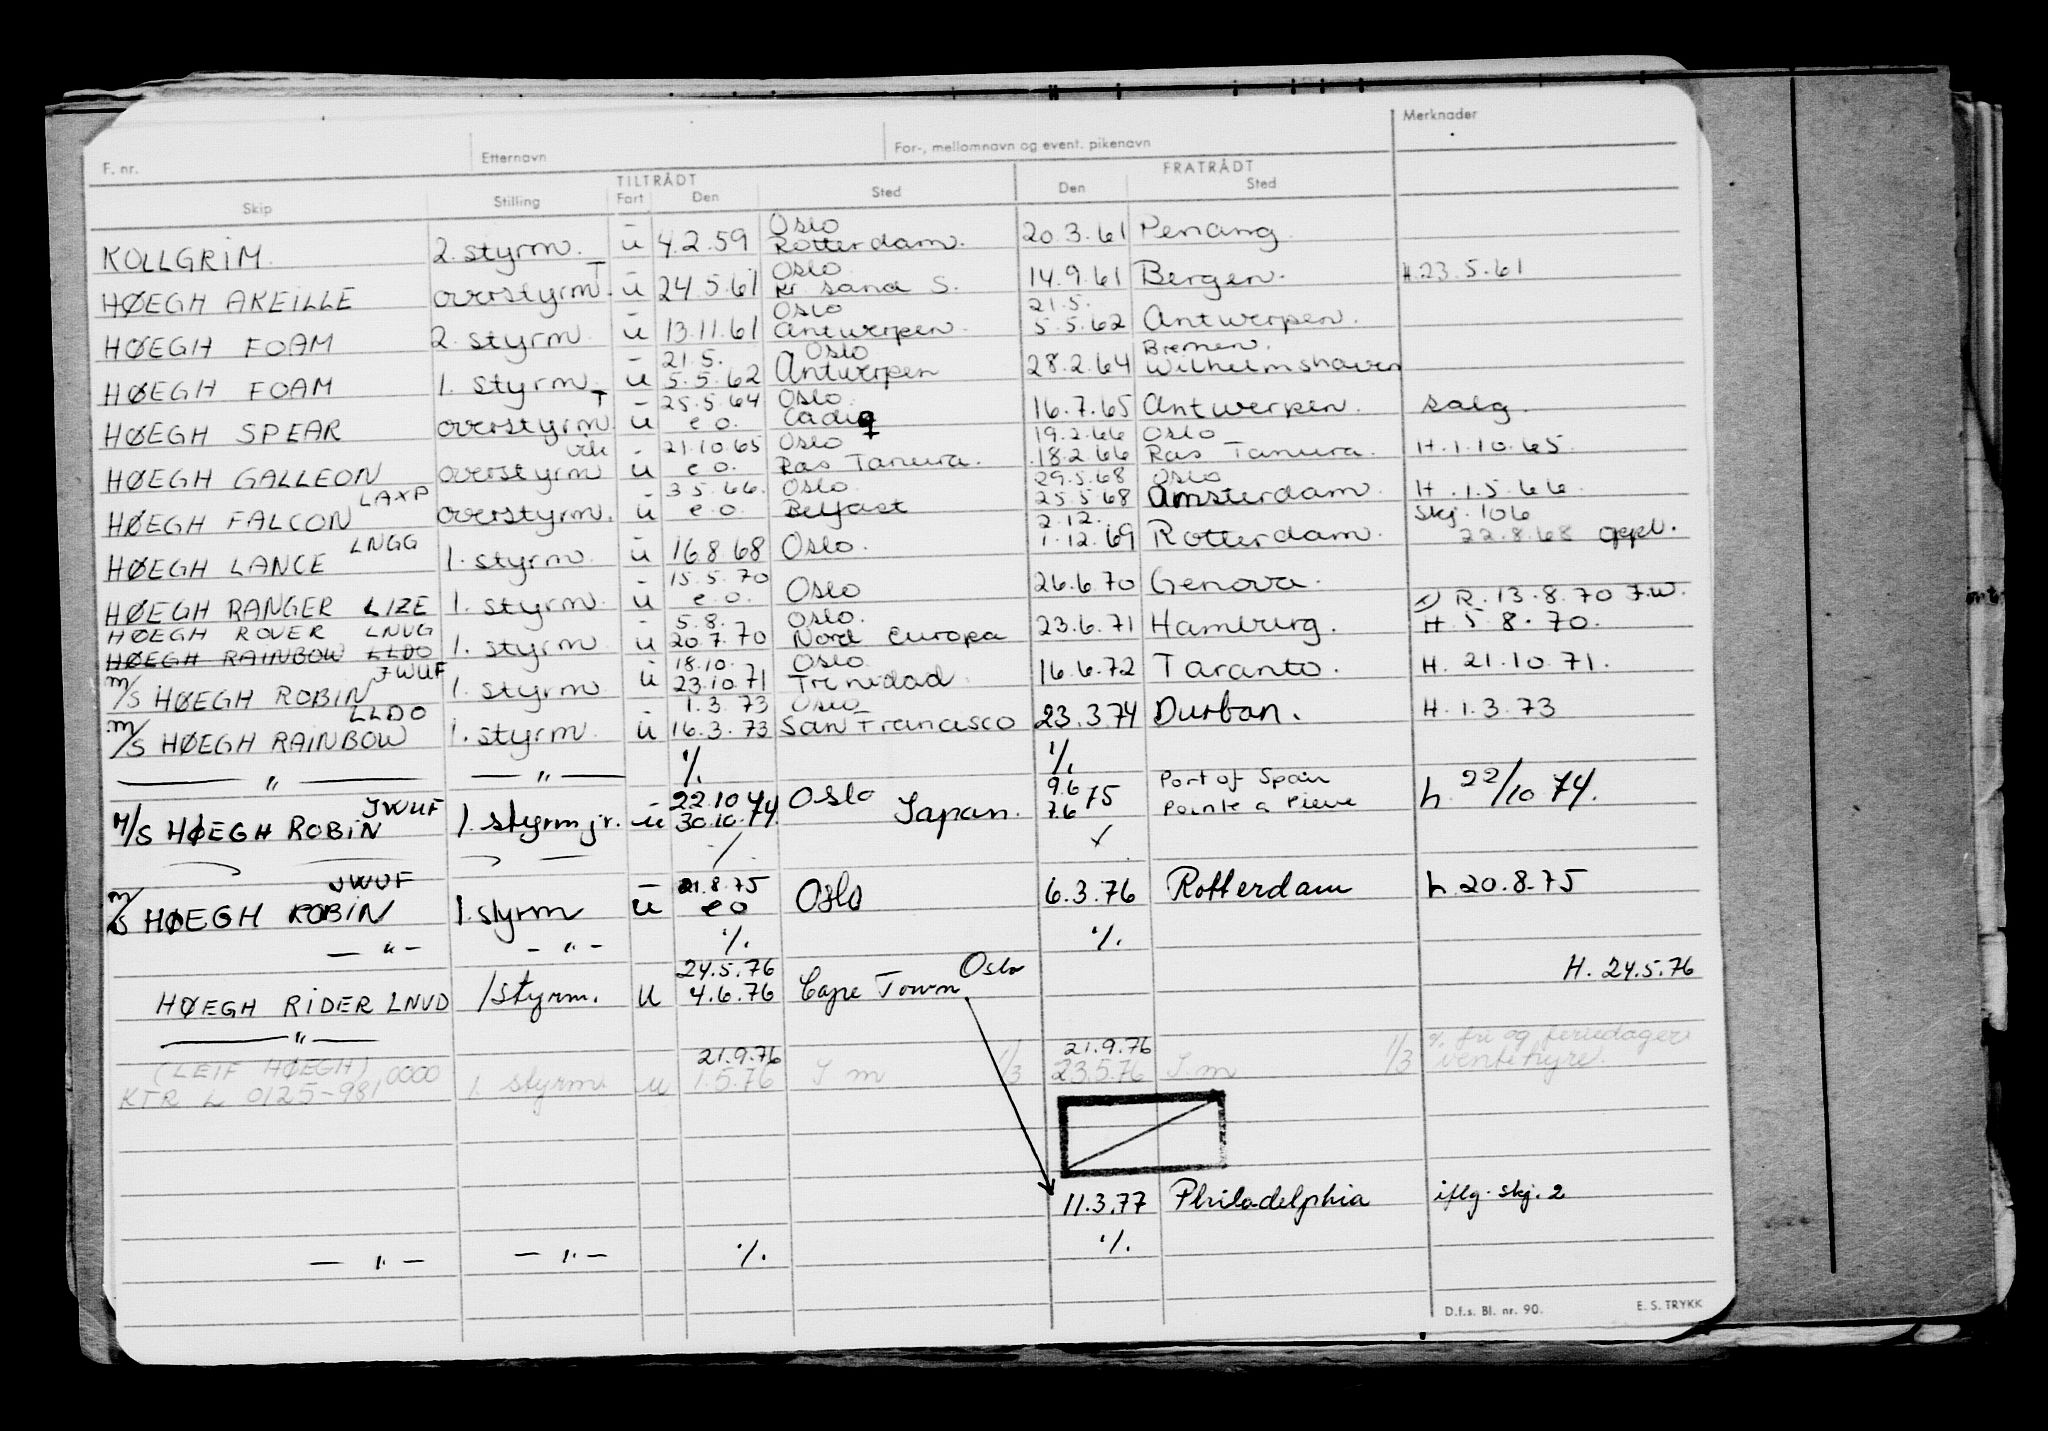 F. nr. Etternavn For-, mellomnavn og event. pikenavn Merknader
TILTRÅDT FRATRÅDT
Skip Stilling Fart Den Sted Den Sted
- Oslo
KOLLGRIM 2. styrm. u 4.2.59 Rotterdam. 20.3.61 Penang.
T - Oslo
HØEGH AREILLE overstyrm. u 24.5.61 Kr. sand S. 14.9.61 Bergen. H.23.5.61
- Oslo 21.5.
HØEGH FOAM 2. styrm u 13.11.61 Antwerpen. 5.5.62 Antwerpen.
- 21.5. Oslo Bremen.
HØEGH FOAM 1. styrm u 5.5.62 Antwerpen 28.2.64 Wilhelmshaven
T - 25.5.64 Oslo.
HØEGH SPEAR overstyrm u e.o. Cadiz 16.7.65 Antwerpen. salg.
vik - 21.10.65 Oslo 19.2.66 Oslo
HØEGH GALLEON overstyrm u e.o. Ras Tanura. 18.2.66 Ras Tanura. H.1.10.65.
LAXP - 3.5.66. Oslo. 29.5.68 Oslo
HØEGH FALCON overstyrm. u e.o. Belfast 25.5.68 Amsterdam. H.1.5.66.
LNGG - 2.12. Skj. 106
HØEGH LANCE 1. styrm. u 16.8.68 Oslo. 1.12.69 Rotterdam. 22.8.68 oppl.
- 15.5.70
HØEGH RANGER LIZE 1. styrm. u e.o. Oslo 26.6.70 Genova. R.13.8.70 F.W.
HØEGH ROVER LNVG - 5.8. Oslo.
HØEGH RAINBOW LLDO 1. styrm u 20.7.70 Nord Europa 23.6.71 Hamburg. H.5.8.70.
JWUF - 18.10. Oslo
m/s HØEGH ROBIN 1. styrm u 23.10.71 Trinidad. 16.6.72 Taranto. H. 21.10.71.
LLDO - 1.3.73 Oslo
m/s HØEGH RAINBOW 1. styrm. u 16.3.73 San Francisco 23.3.74 Durban. H.1.3.73
— " — — " — ./. ./.
JWUF - 22.10.74 Oslo 9.6 Port of Spain
M/S HØEGH ROBIN 1. styrm jr. u 30.10.74. Japan. 7.6 75 Pointe a Pierre h. 22/10 74.
./.
JWUF - 21.8.75
m/s HØEGH ROBIN 1. styrm u e o Oslo 6.3.76 Rotterdam h.20.8.75
— " — — " — ./. ./.
24.5.76 Oslo H. 24.5.76
HØEGH RIDER LNVD 1 styrm. u 4.6.76 Cape Town
— " —
(LEIF HØEGH) 0000 21.9.76 21.9.76 % fri og feriedager
KTR L 0125-981 1. styrm. u 1.5.76 I m 1/3 23.5.76 I m 1/3 ventehyre.
11.3.77 Philadelphia iflg. skj. 2
— " — — " — ./. ./.
D.f.s. Bl. nr. 90. E. S. TRYKK